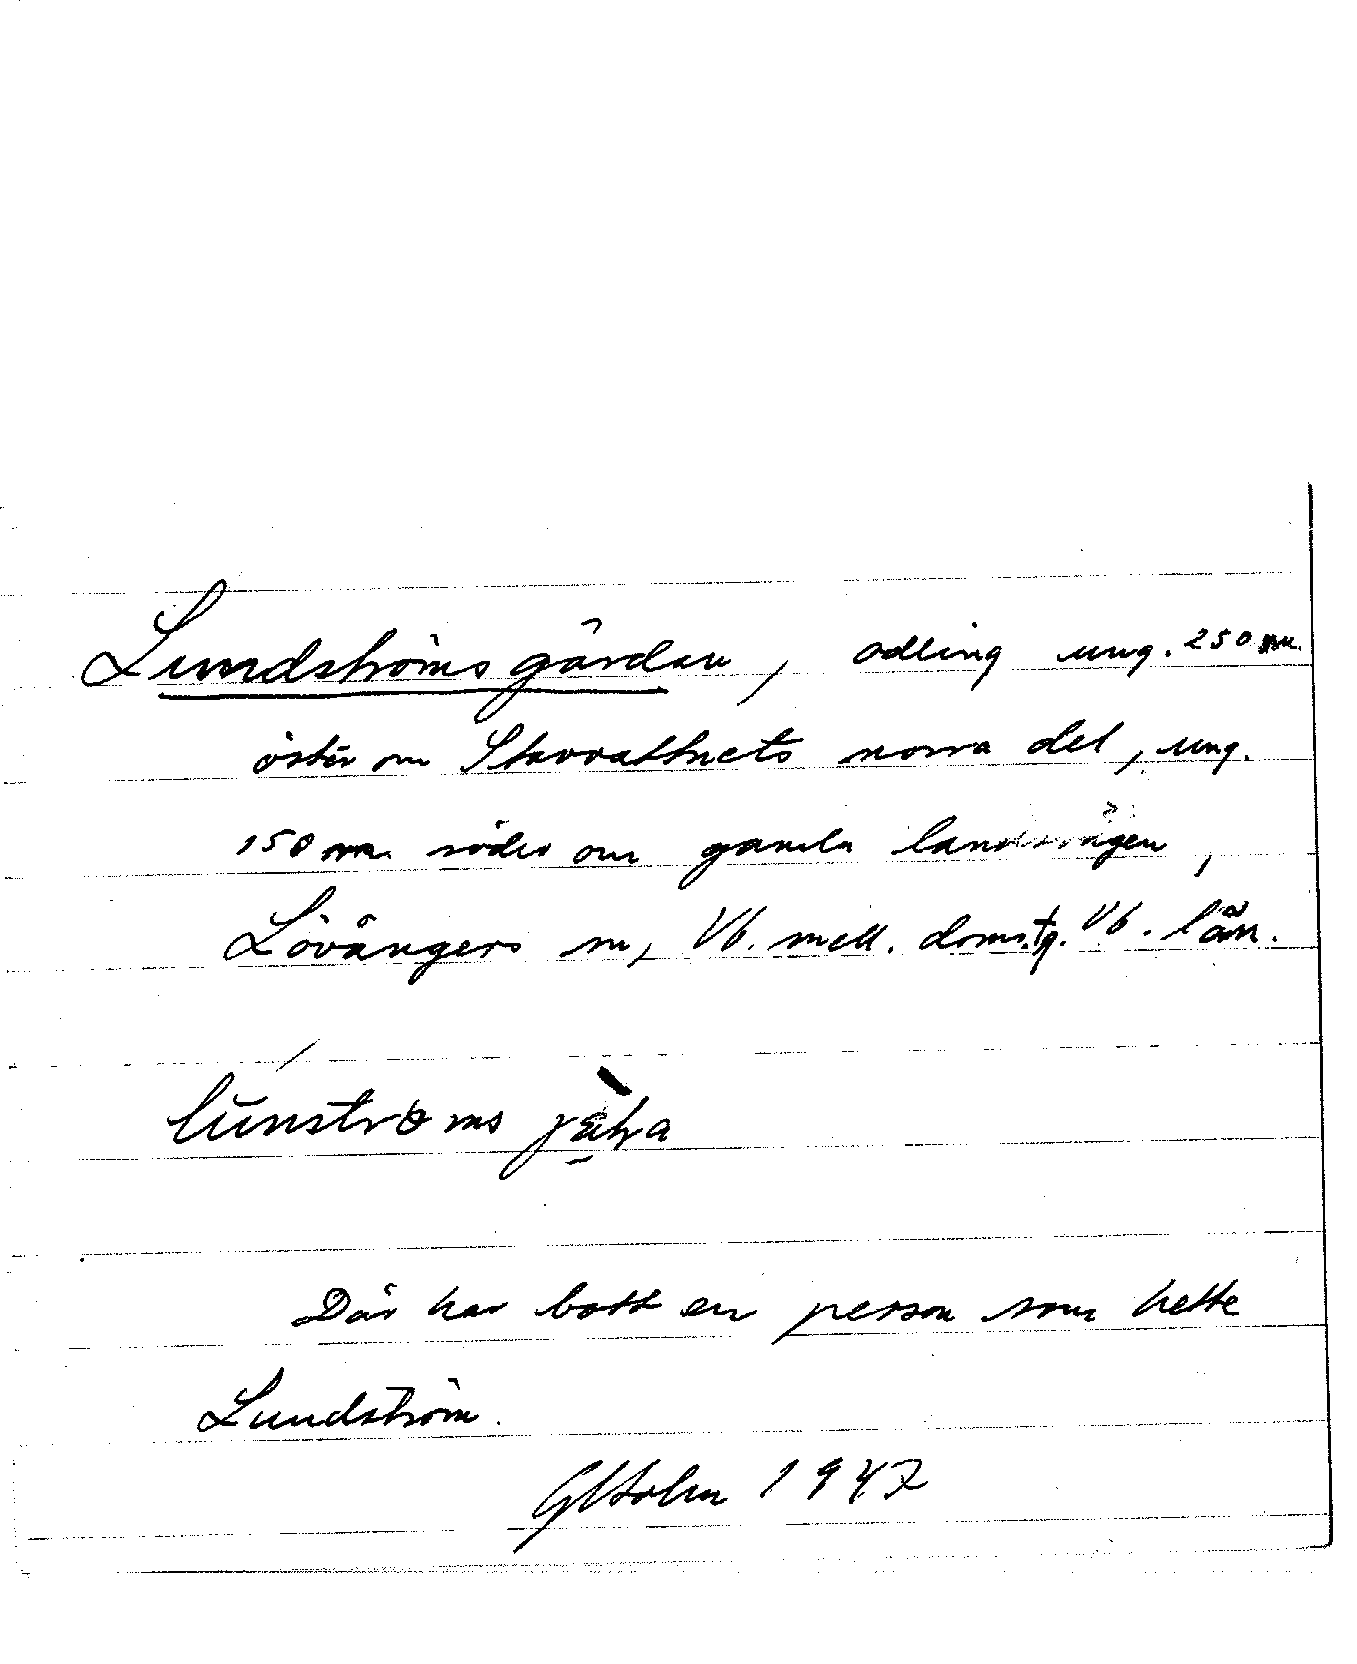 Lundströmsgärdan, odling ung. 250 m.
öster om Starvattnets norra del, ung.
150 m. söder om gamla landsvägen,
Lövångers sn, Vb. mell. doms.tg. Vb. län.
lunströms
Där har bott en person som hette
Lundström.
GHolm 1947